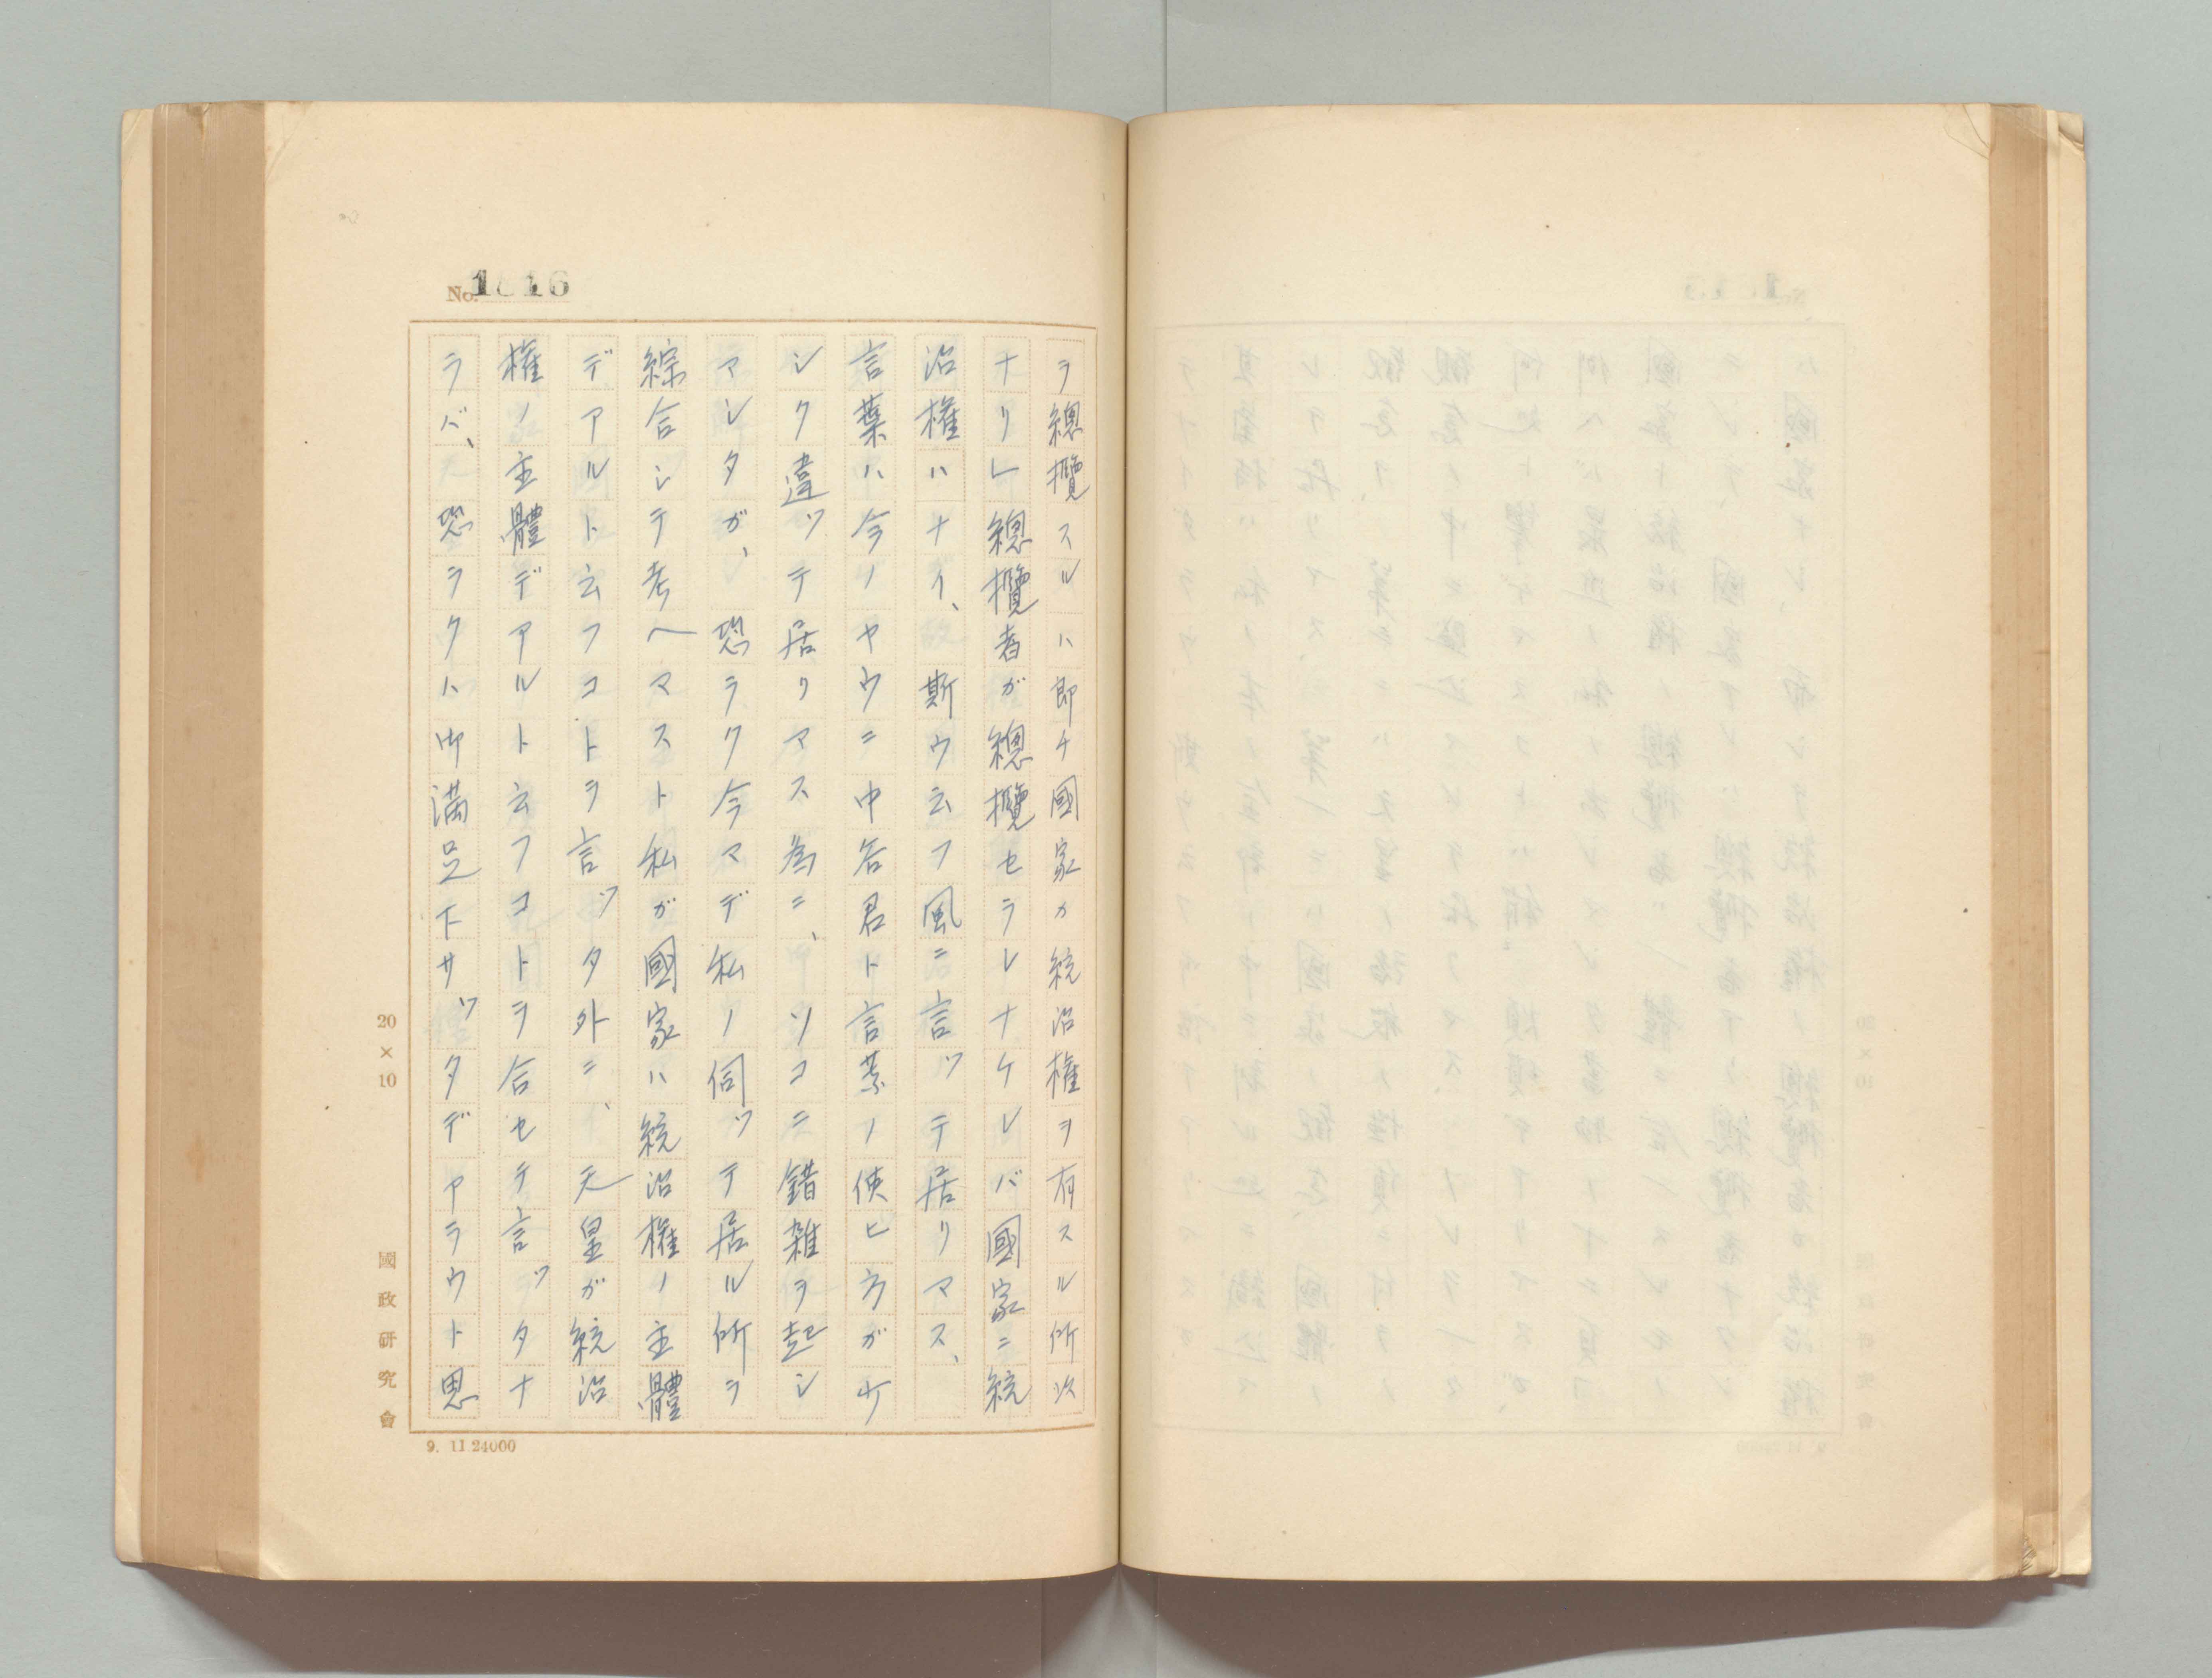 No. 1616
ヲ總攬スルハ即チ國家カ統治權ヲ有スル所以
ナリ」總攬者が總攬セラレナケレバ國家ニ統
治權ハナイ、斯ウ云フ風ニ言ツテ居リマス、
言葉ハ今ノヤウニ中 君ト言葉ノ使ヒ方ガ少
シク違ツテ居リマス為ニ、ソコニ錯雑ヲ起シ
マシタガ、恐ラク今マデ私ノ伺ツテ居ル所ヲ
綜合シテ考ヘマスト私ガ國家ハ統治權ノ主體
デアルト云フコトヲ言ツタ外ニ、天皇ガ統治
權ノ主體デアルト云フコトヲ合セテ言ツタナ
ラバ、恐ラクハ御満足下サツタデアラウト思
20×10
國政研究會
9. 11 24000